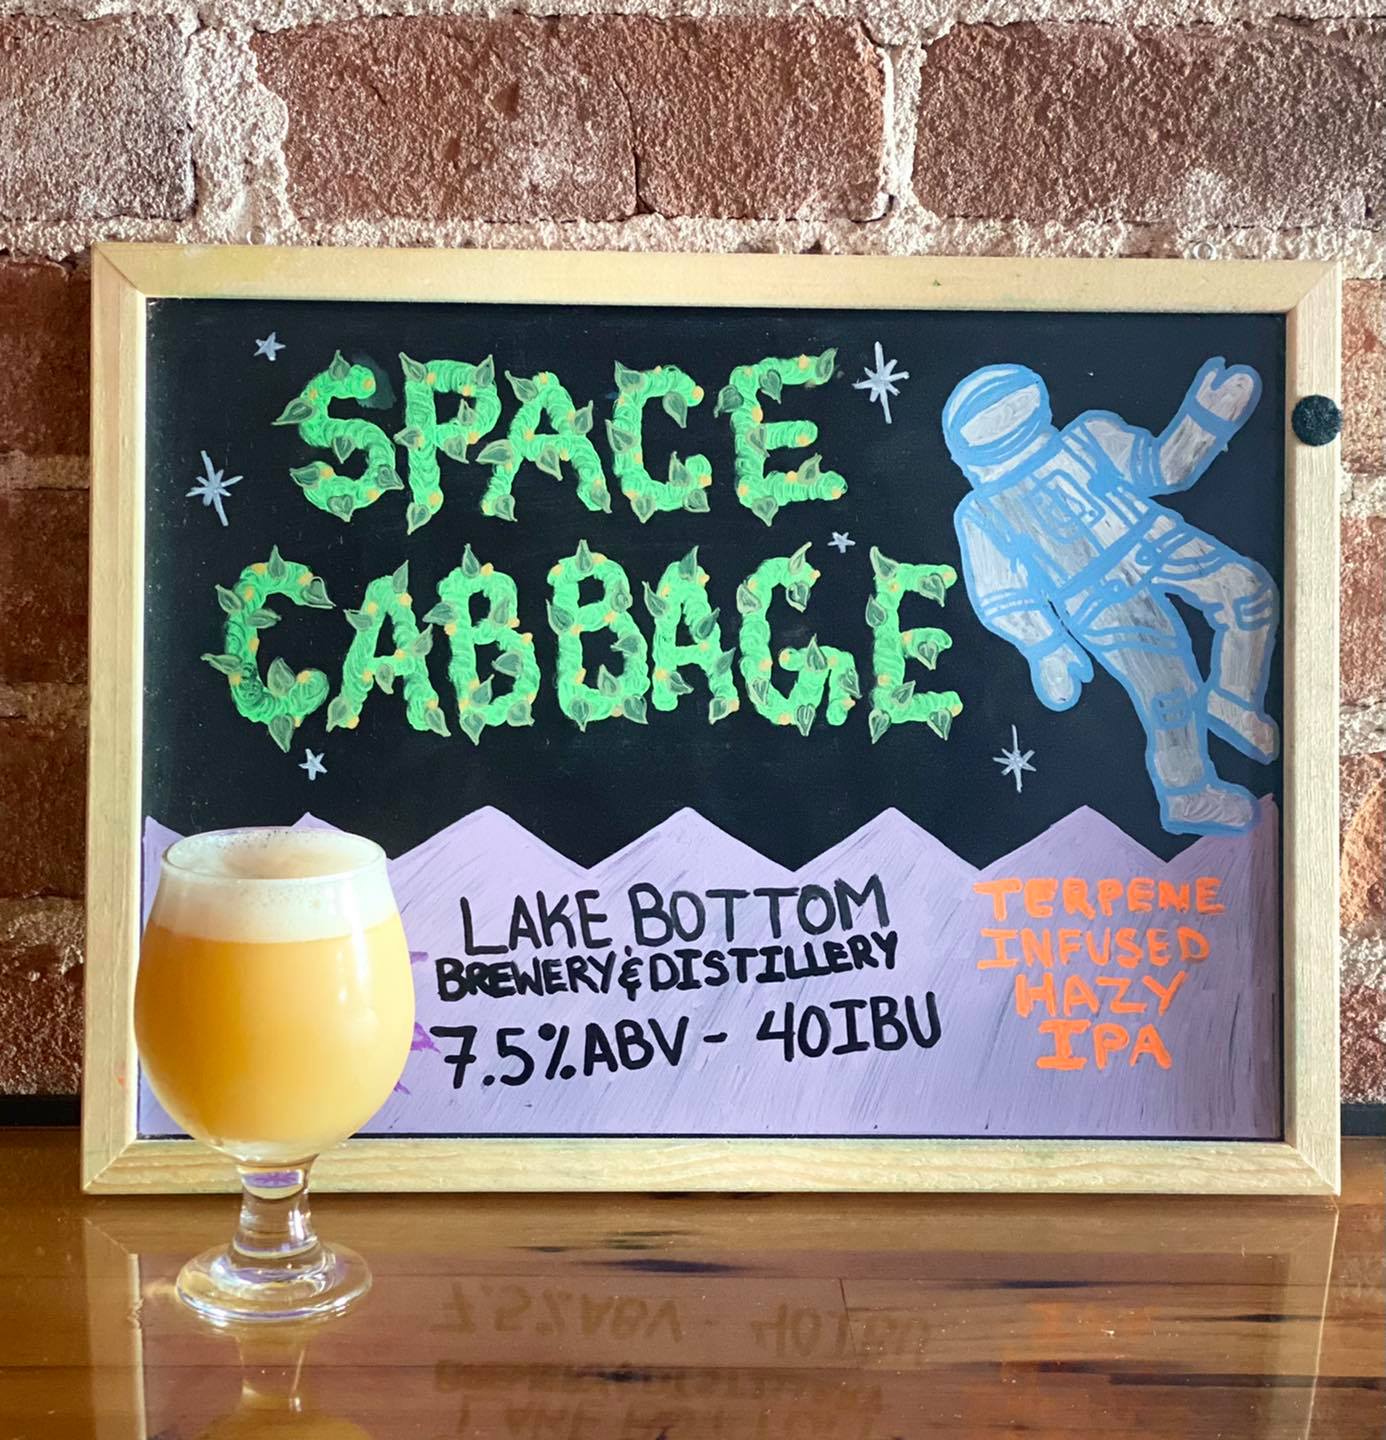 SPACE
CABBAGE
LAKE BOTTOM
BREWERY & DISTILLERY
7.5% ABV - 40 IBU
TERPENE
INFUSED
HAZY
IPA